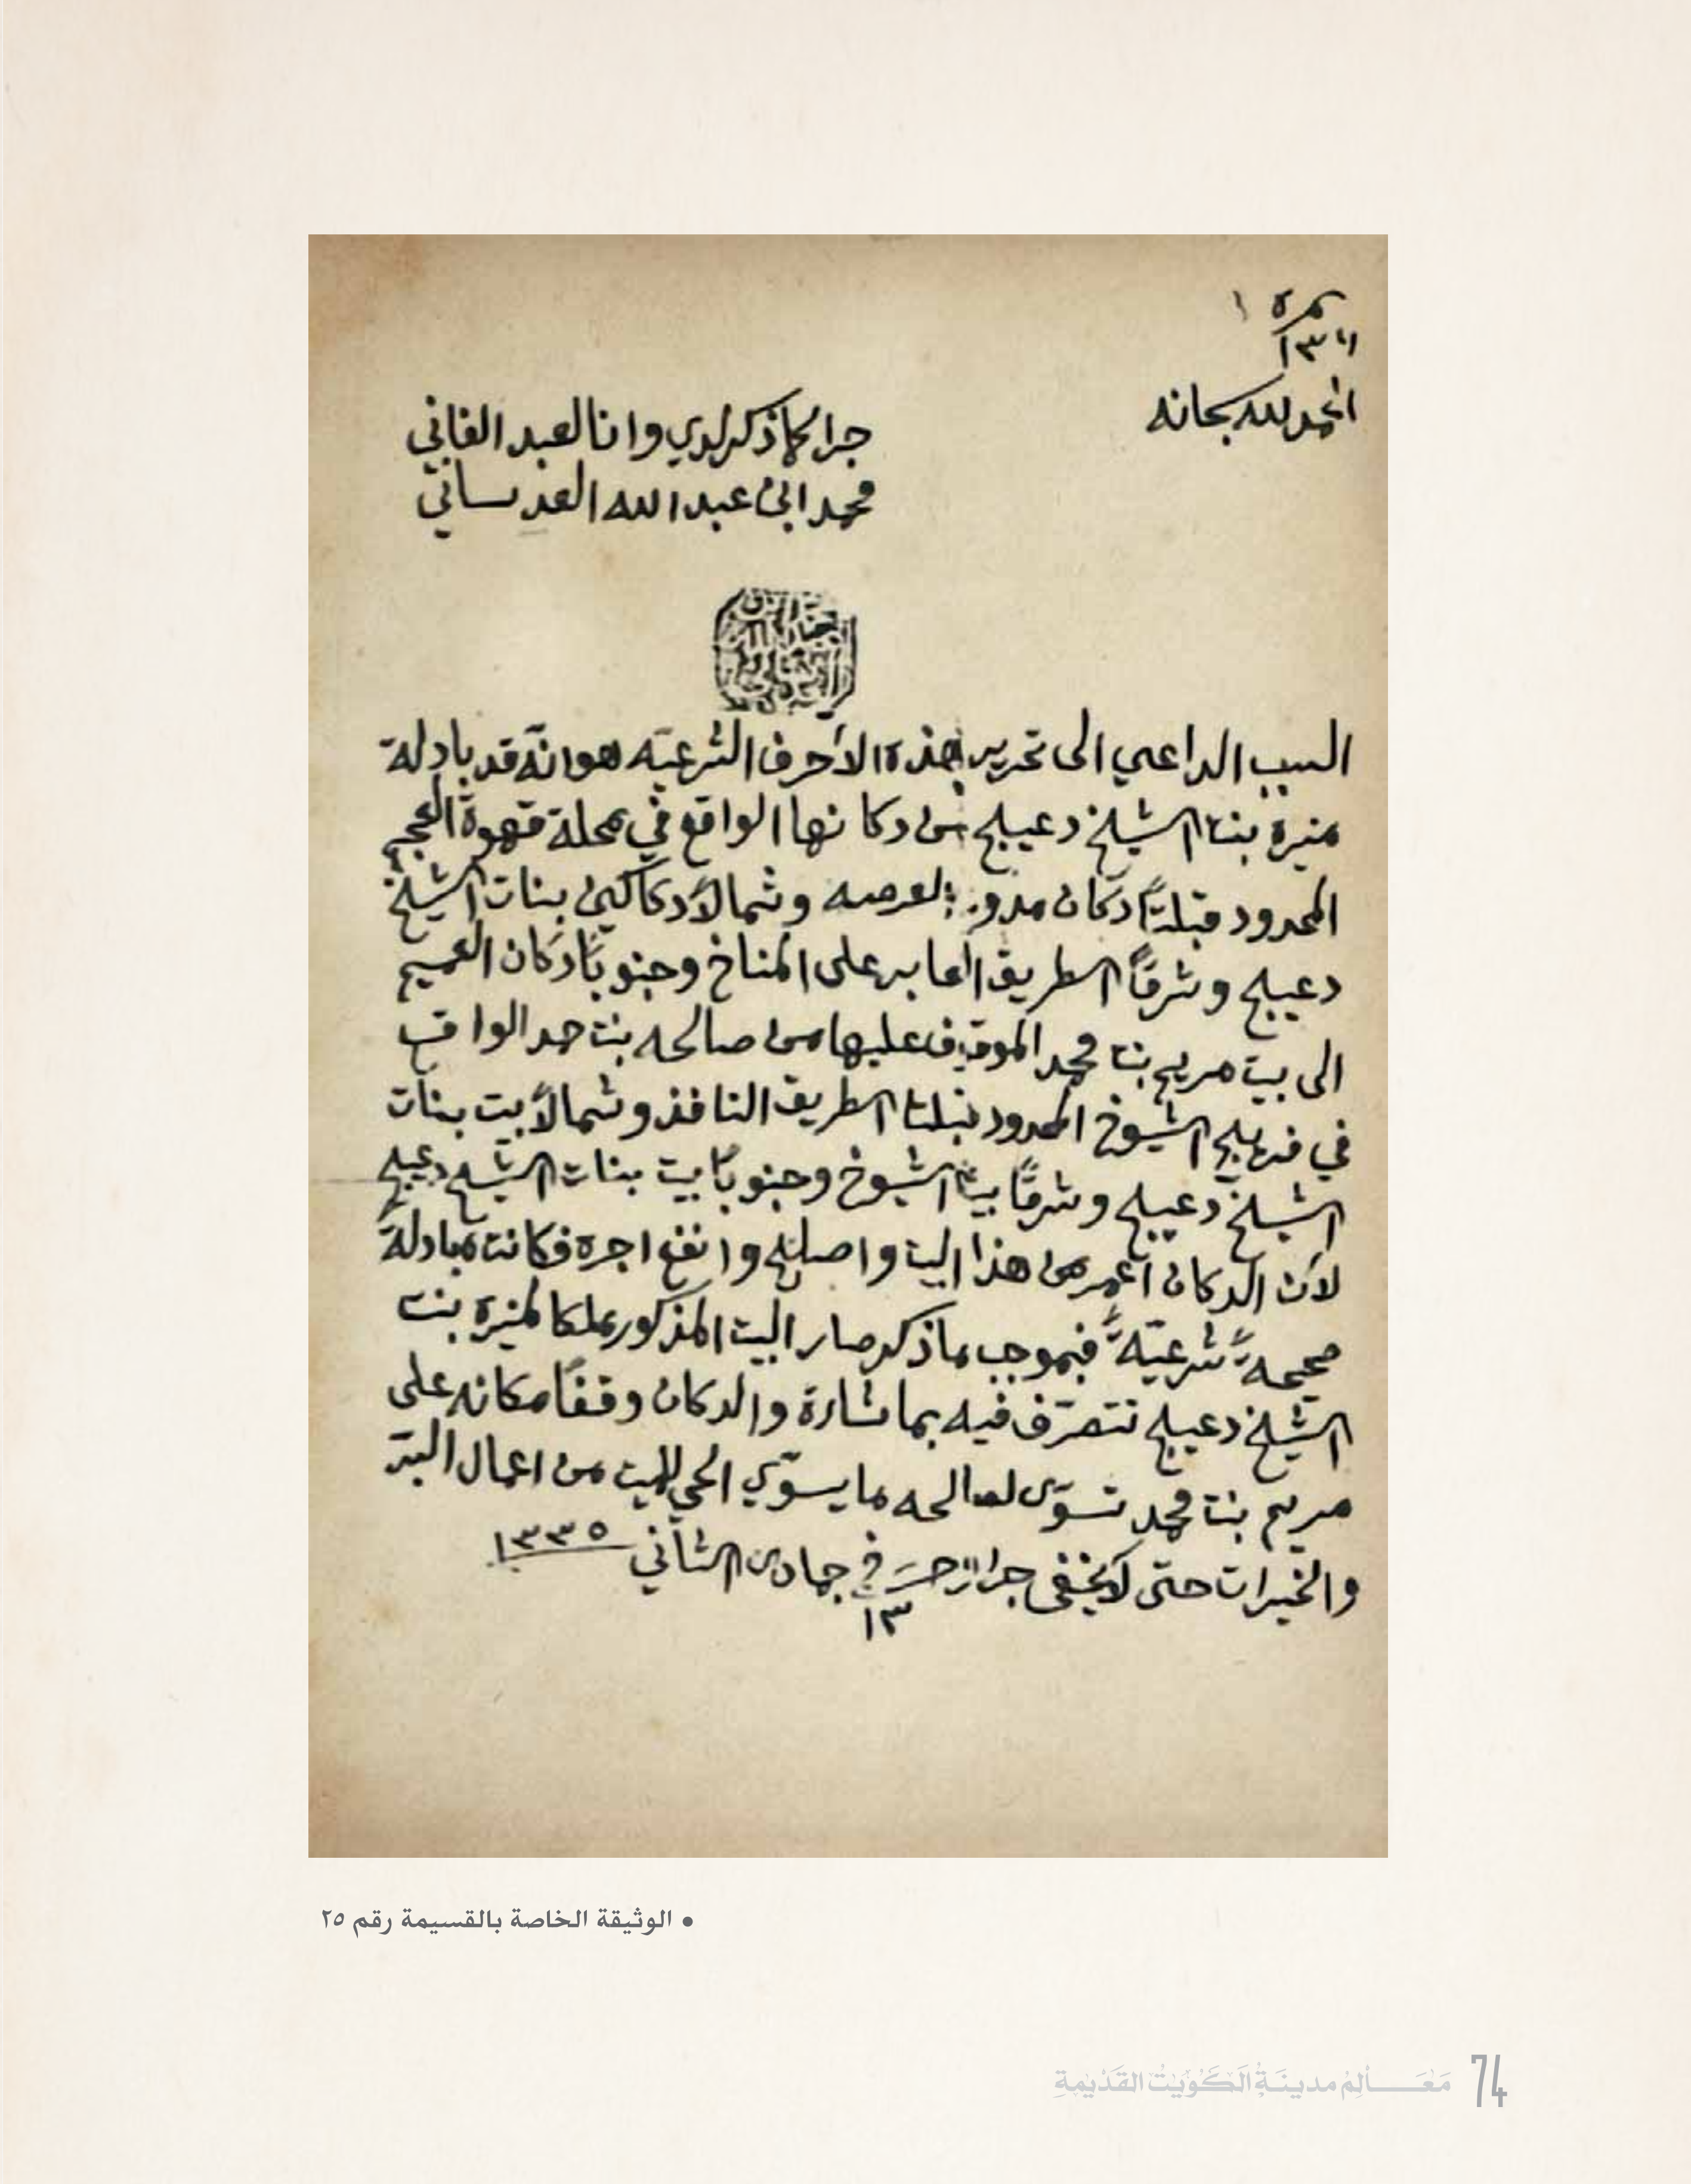 نمره ١
١٣
الحمد لله سبحانه
جرا كما ذكر لدي وانا العبد الفاني
محمد ابن عبدالله العدساني
السبب الداعي الى تحرير هذه الأحرف الشرعيّه هو انّه قد بادلة
منيرة بنت الشيخ دعيج من دكانها الواقع في محلة قهوة العجم
المحدود قبلتاً دكان العرصه وشمالاً دكاكين بنات الشيخ
دعيج وشرقاً الطريق العابر على المناخ وجنوباً دكان الغميم
الى بيت مريم بنت محمد الموقوف عليها من صالحه بنت حمد الواقع
في فريج الشيوخ المحدود قبلتا الطريق النافذ وشمالاً بيت بنات
الشيخ دعيج وشرقاً بيت الشيوخ وجنوباً بيت بنات الشيخ دعيج
لأن الدكان اعمر من هذا البيت واصلح وانفع اجره فكانت مبادلةً
صحيحةً شرعيّةً فبموجب ما ذكر صار البيت المذكور ملكا لمنيرة بنت
الشيخ دعيج تتصرّف فيه بما تشاءة والدكان وقفاً مكانه على
مريم بنت محمد تسوّي لصالحه ما يسوّي الحي للميت من اعمال البرّ
والخيرات حتى لا يخفى جرا وحرر في ١٣ جمادى الثاني ١٣٣٥
• الوثيقة الخاصة بالقسيمة رقم ٢٥
مَعَالِمُ مدينَةِ الكُوَيْت القَدْيمة 74